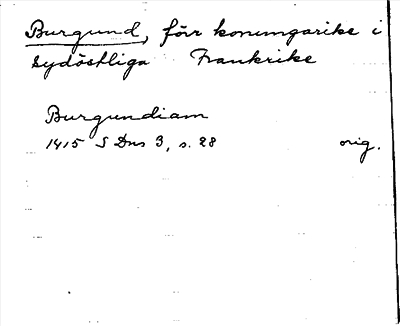 Burgund, förr konungarike i
sydöstliga Frankrike
Burgundiam
1415 S Dns 3, s. 28 orig.